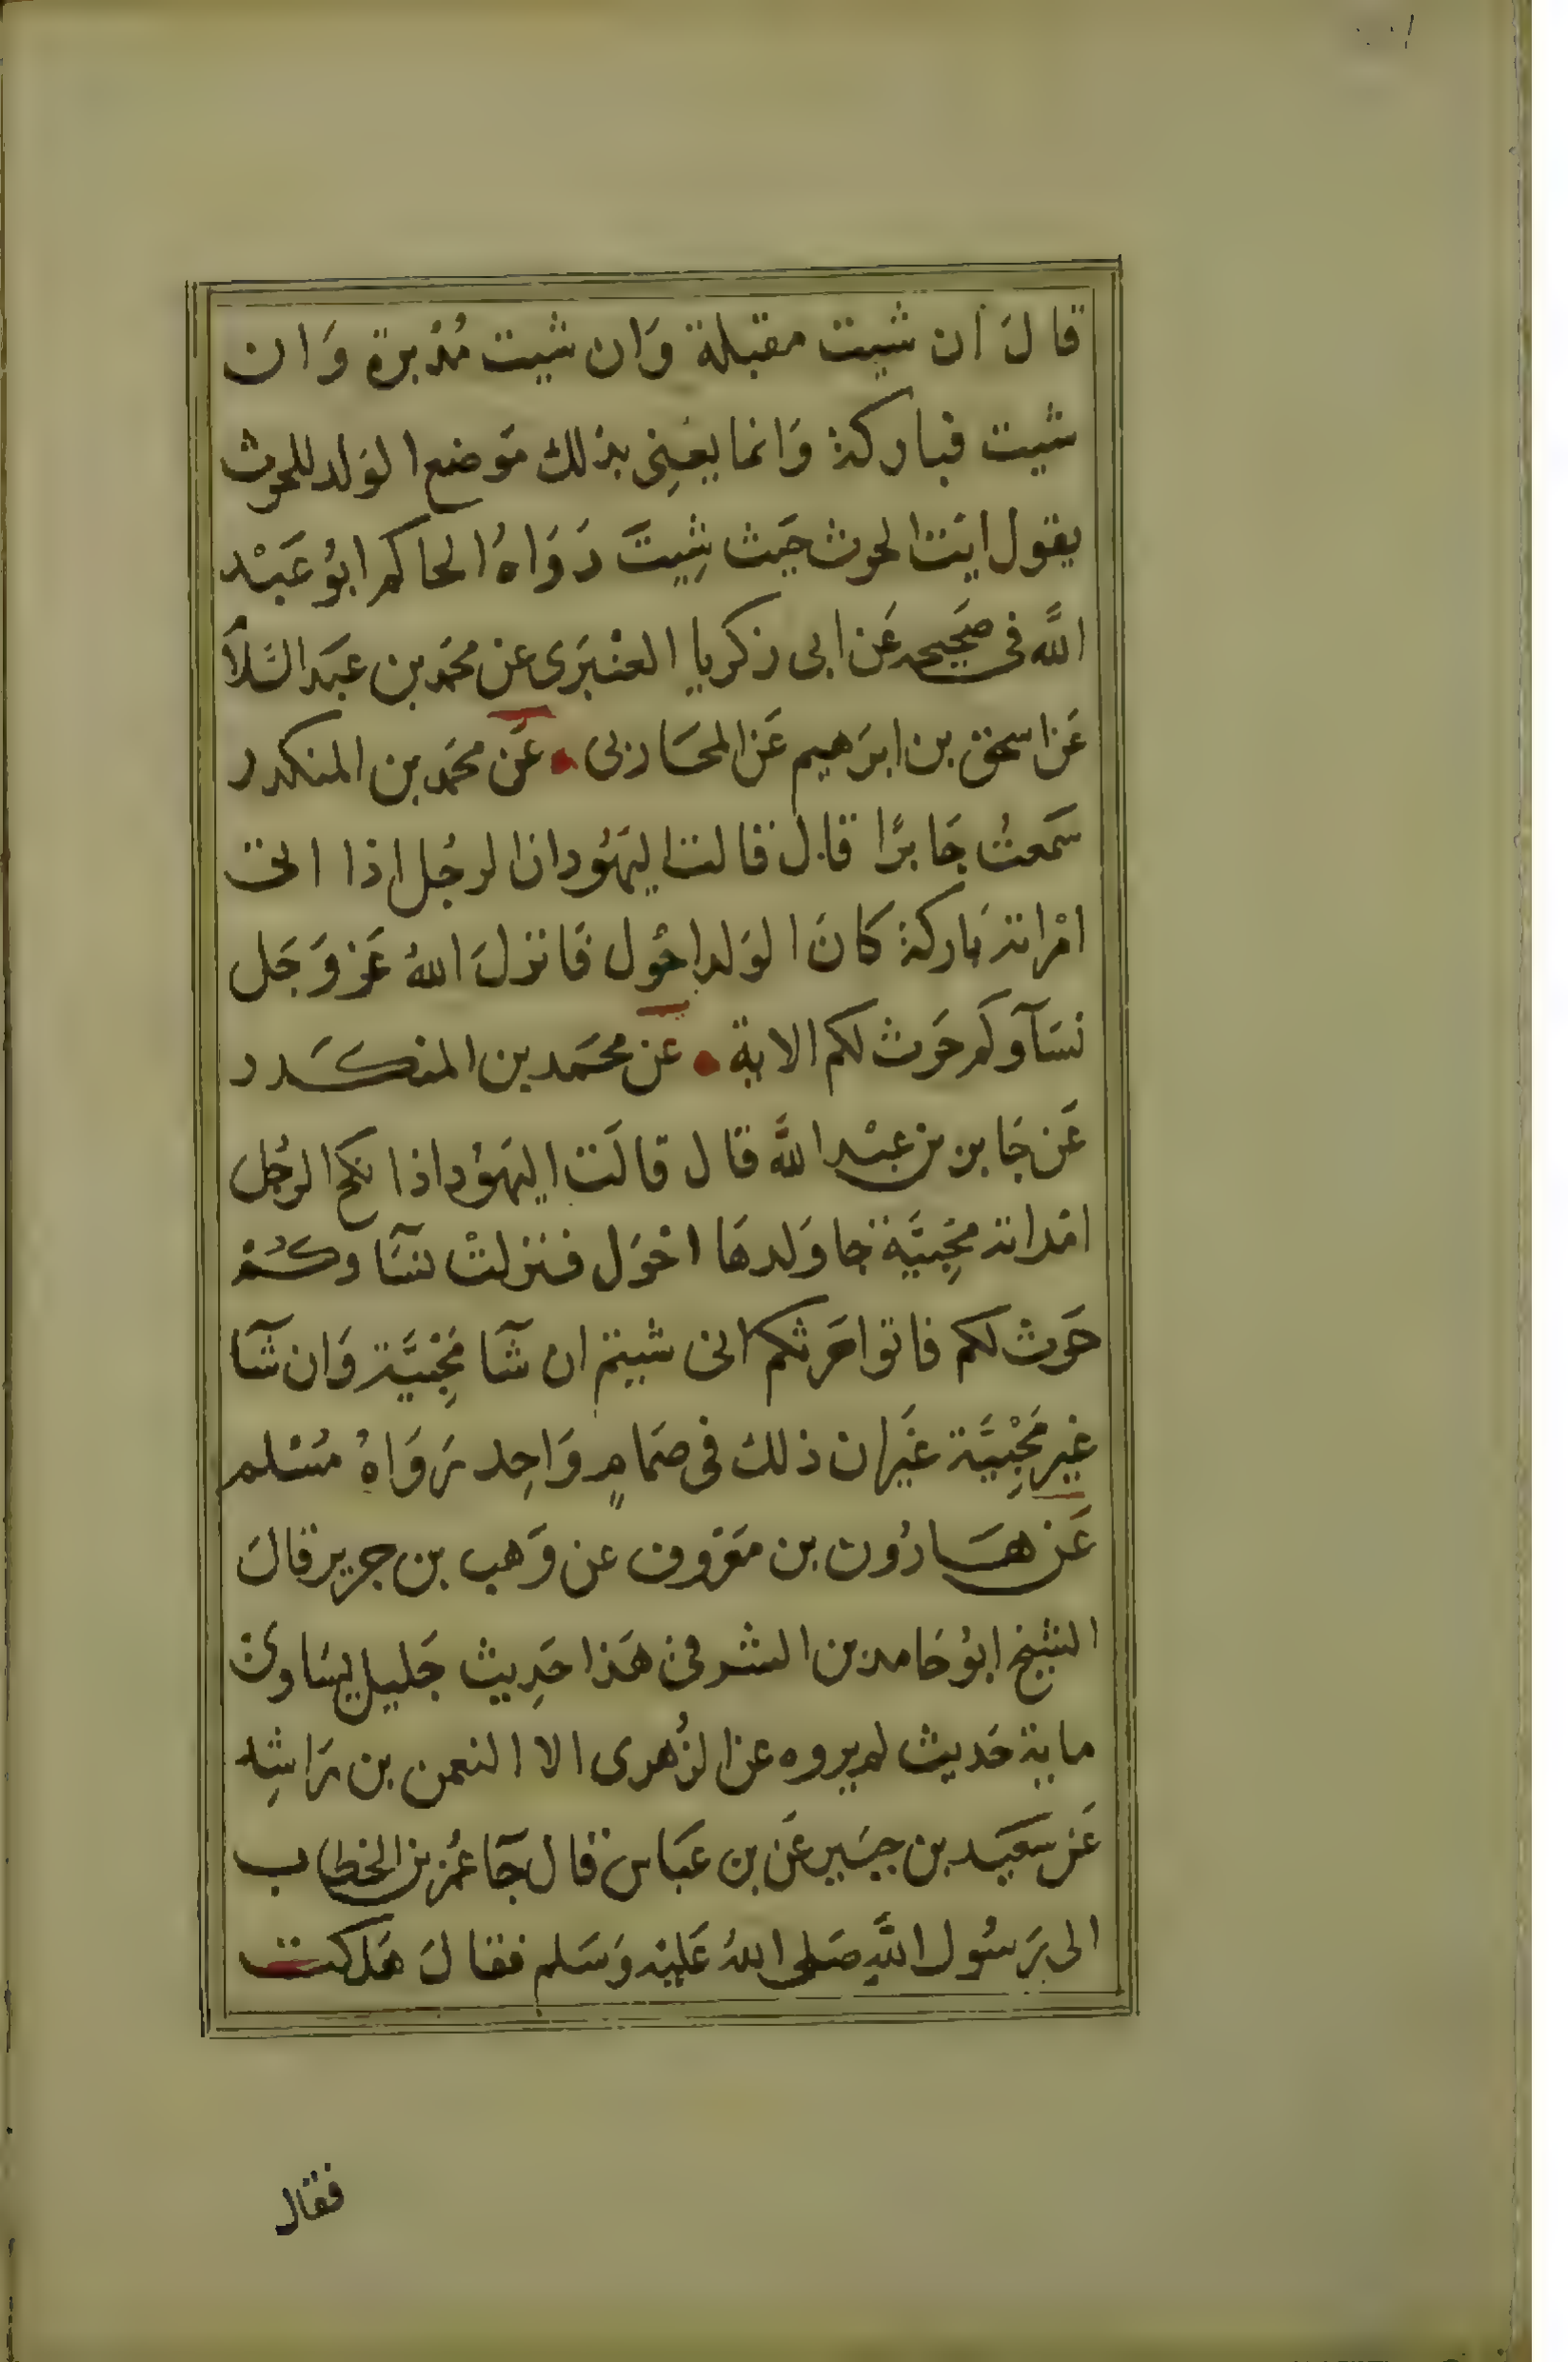 قالَ ان شيت مقبلة وَان شيت مُدْبرة وَان
شيت فباركة وَانما يعني بذلك مَوضع الوَلد للحرث
يقول ايت الحرث حَيث شِيتَ رَوَاهُ الحاكم ابُو عَبْد
اللَّه في صَحيحه عَن ابي زكريا العنْبَرى عَن محمَد بن عبَد السَّلاَ
عَن اسحق بن ابرَهيم عَن المحَاربى عَن محمَد بن المنكدر
سَمعتُ جَابرًا قال قالت اليَهُود ان الرجُل اذا اتى
امْراته بَاركة كانَ الوَلد احْول فَانزلَ اللهُ عَز وَجَل
نسَآوكم حَرث لكم الاية عَن محمَد بن المنكدر
عَن جَابر بن عبْد اللَّه قال قالَت اليهَوُد اذا نكح الرجُل
امْراته مجَبِيَّة جا وَلدهَا احْوَل فنزلتْ نسَآوكُمْ
حَرث لكم فاتوا حَرثكم انى شيتم ان شَآ مُجَبِّيَة وَان شَآ
غير مَجْبِيَّة غَير ان ذلك فى صمَامٍ وَاحِد رَوَاهُ مُسْلم
عَن هَارُون بن مَعرُوف عن وَهب بن جرير قالَ
الشيخ ابُو حَامد بن الشرقى هَذا حَدِيث جَليل يسَاوى
ماية حَديث لم يروه عن الزُهرى الا النعمن بن رَاشِد
عَن سَعيَد بن جبَير عَن بن عَبَاس قال جَآ عُمَر بن الخطاب
الى رَسُول اللَّهِ صَلى اللهُ عَليْه وَسَلم فقالَ هَلكت
فقال